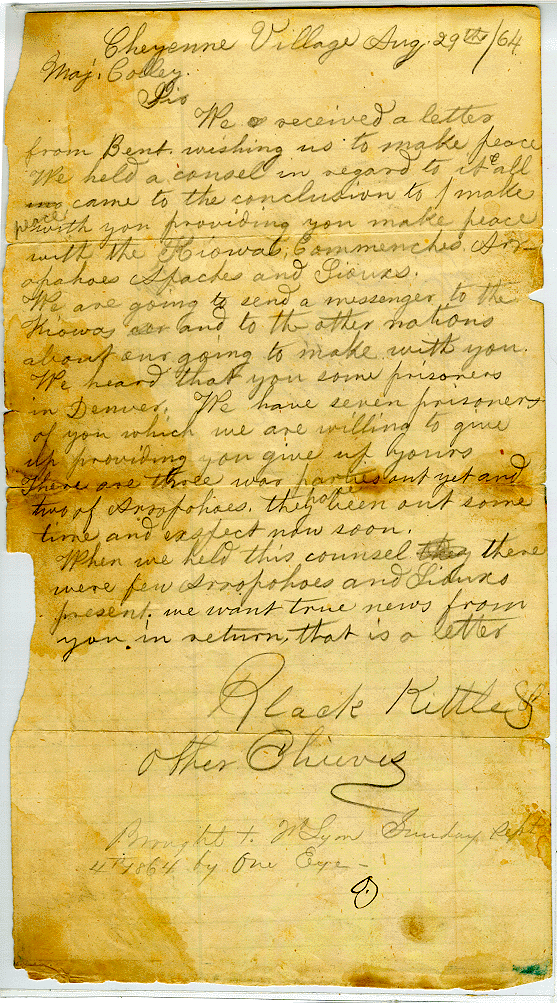 Cheyenne Village Aug. 29th/64
Maj. Colley.
Sir
We received a letter
from Bent. wishing us to make peace
We held a counsel in regard to it & all
came to the conclusion to make
peace
with you providing you make peace
with the Kiowas, Commenches, Arr-
apahoes Apaches and Siouxs.
We are going to send a messenger to the
Kiowas and to the other nations
about our going to make with you.
We heard that you some prisoners
in Denver. We have seven prisoners
of you which we are willing to give
up providing you give up yours
There are three war parties out yet and
have
two of Arropohoes. they been out some
time and exspect now soon.
When we held this counsel they there
were few Arropohoes and Siouxs
present. we want true news from
you. in return, that is a letter
Black Kittle &
other Chieves
Brought to Lyon Sunday Sept
4th 1864 by One Eye -